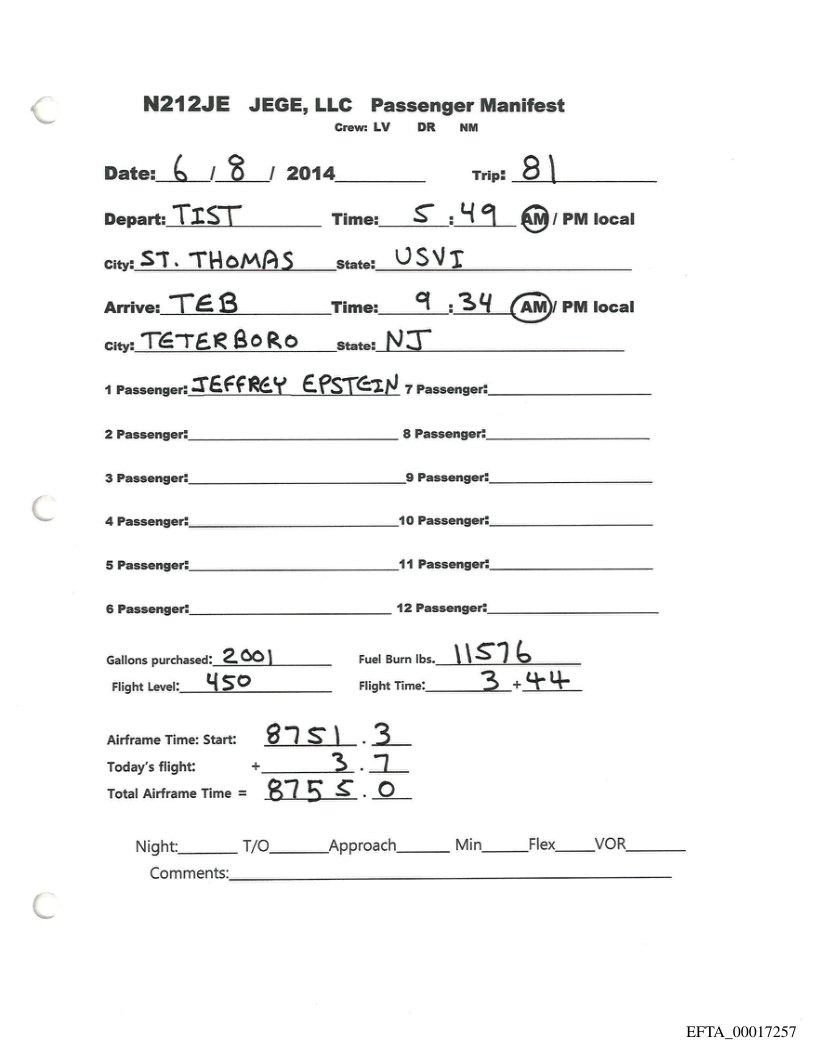 N212JE JEGE, LLC Passenger Manifest
Crew: LV DR NM
Date: 6 / 8 / 2014 Trip: 81
Depart: TIST Time: 5 : 49 AM / PM local
City: ST. THOMAS State: USVI
Arrive: TEB Time: 9 : 34 AM / PM local
City: TETERBORO State: NJ
1 Passenger: JEFFREY EPSTEIN 7 Passenger:
2 Passenger: 8 Passenger:
3 Passenger: 9 Passenger:
4 Passenger: 10 Passenger:
5 Passenger: 11 Passenger:
6 Passenger: 12 Passenger:
Gallons purchased: 2001 Fuel Burn lbs. 11576
Flight Level: 450 Flight Time: 3 + 44
Airframe Time: Start: 8751 . 3
Today's flight: + 3 . 7
Total Airframe Time = 8755 . 0
Night: T/O Approach Min Flex VOR
Comments:
EFTA_00017257